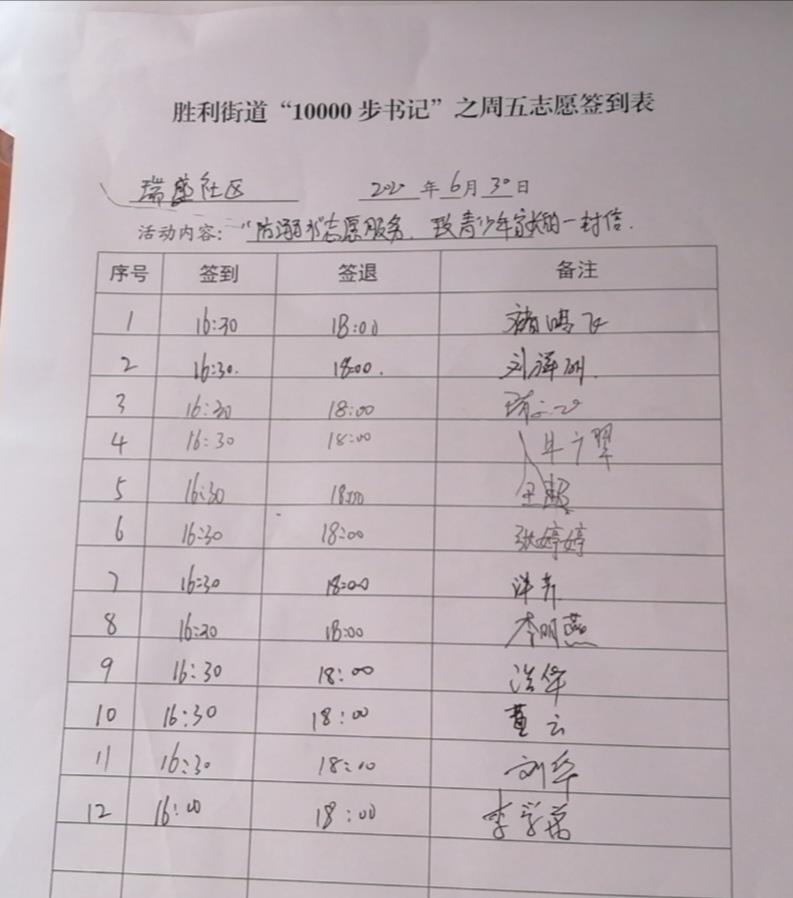 胜利街道“10000步书记”之周五志愿签到表
瑞盛社区 2020年6月30日
活动内容：“防溺水”志愿服务、致青少年家长的一封信.
序号 签到 签退 备注
1 16:30 18:00
2 16:30. 18:00.
3 16:30 18:00
4 16:30 18:00
5 16:30 18:00 王超
6 16:30 18:00 张婷婷
7 16:30 18:00
8 16:30 18:00 李明燕
9 16:30 18:00
10 16:30 18:00 董云
11 16:30 18:00 刘华
12 16:00 18:00